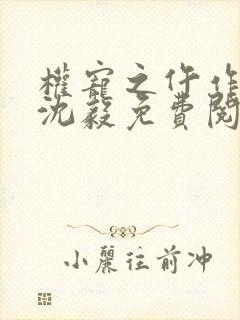 權寵之仵作
沈毅免費閱
小麗往前冲